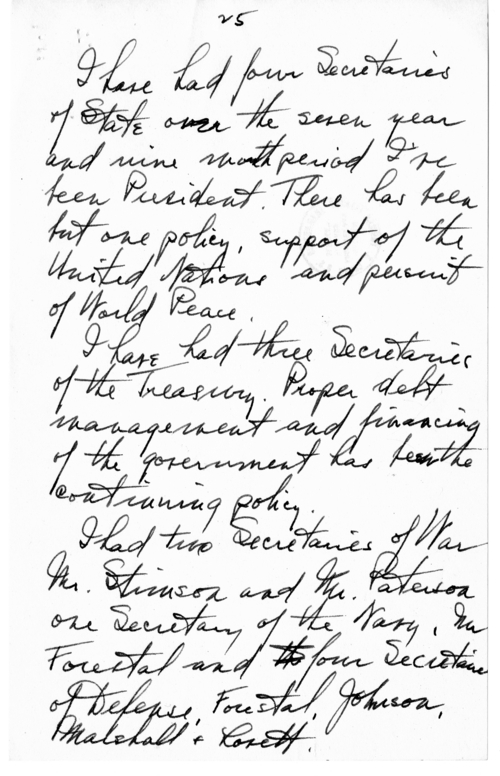 25
I have had four Secretaries
of State over the seven year
and nine month period I've
been President. There has been
but one policy, support of the
United Nations and persuit
of World Peace.
I have had three Secretaries
of the Treasury. Proper debt
management and financing
of the government has been the
continuing policy.
I had two Secretaries of War
Mr. Stimson and Mr. Paterson
one Secretary of the Navy, Mr
Forestal and four Secretaries
of Defense, Forestal, Johnson,
Marshall + Lovett.